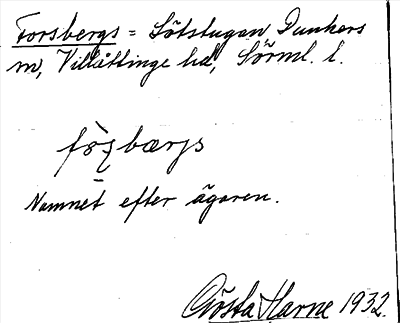 Forsbergs = Lötstugan Dunkers
sn, Villåttinge hd, Sörml. l.
Namnet efter ägaren.
Gösta Harne 1932.